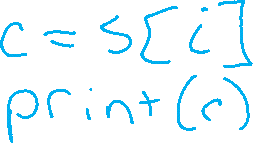 c = s[i]
print(c)